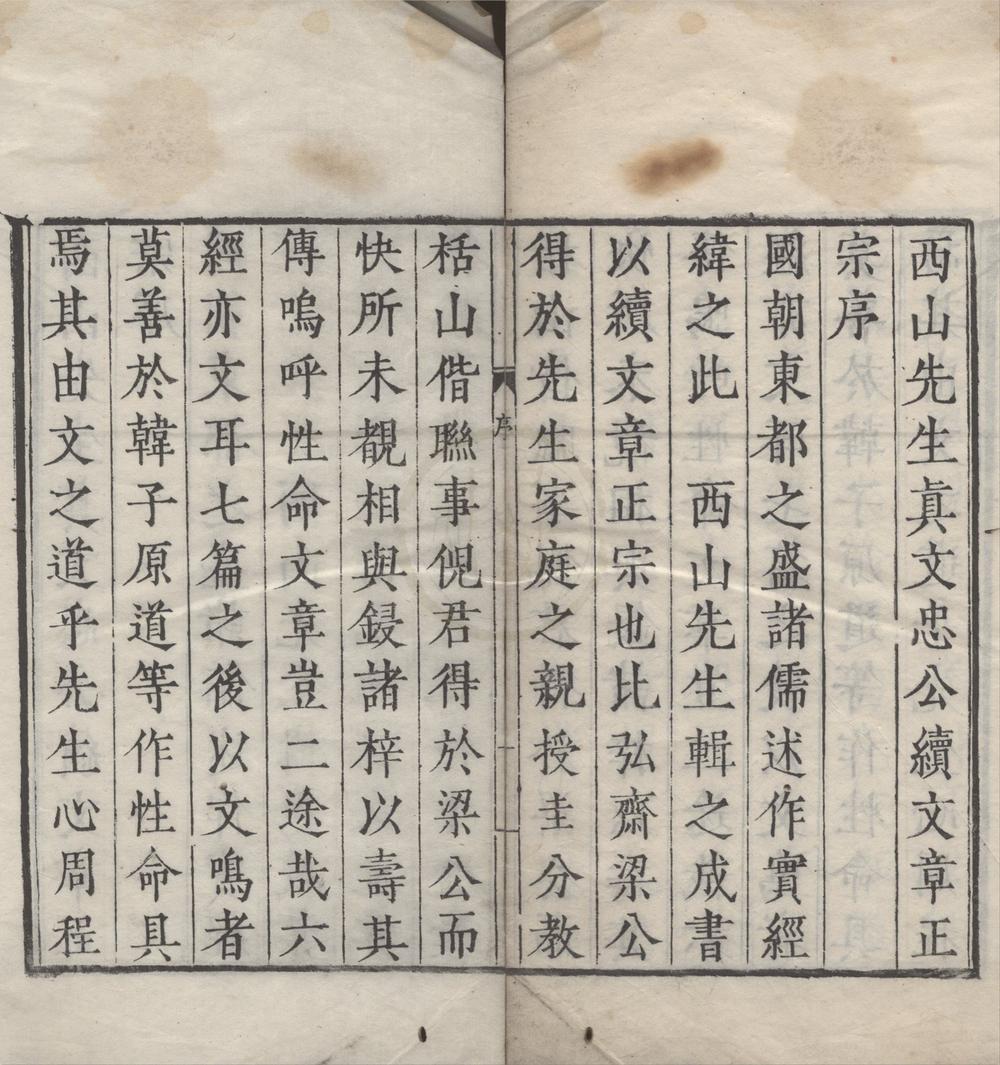 西山先生眞文忠公續文章正
宗序
國朝東都之盛諸儒述作實經
緯之此　西山先生輯之成書
以續文章正宗也比弘齋梁公
得於先生家庭之親授圭分教
序
一
栝山偕聯事倪君得於梁公而
快所未覩相與鋟諸梓以壽其
傳嗚呼性命文章豈二途哉六
經亦文耳七篇之後以文鳴者
莫善於韓子原道等作性命具
焉其由文之道乎先生心周程